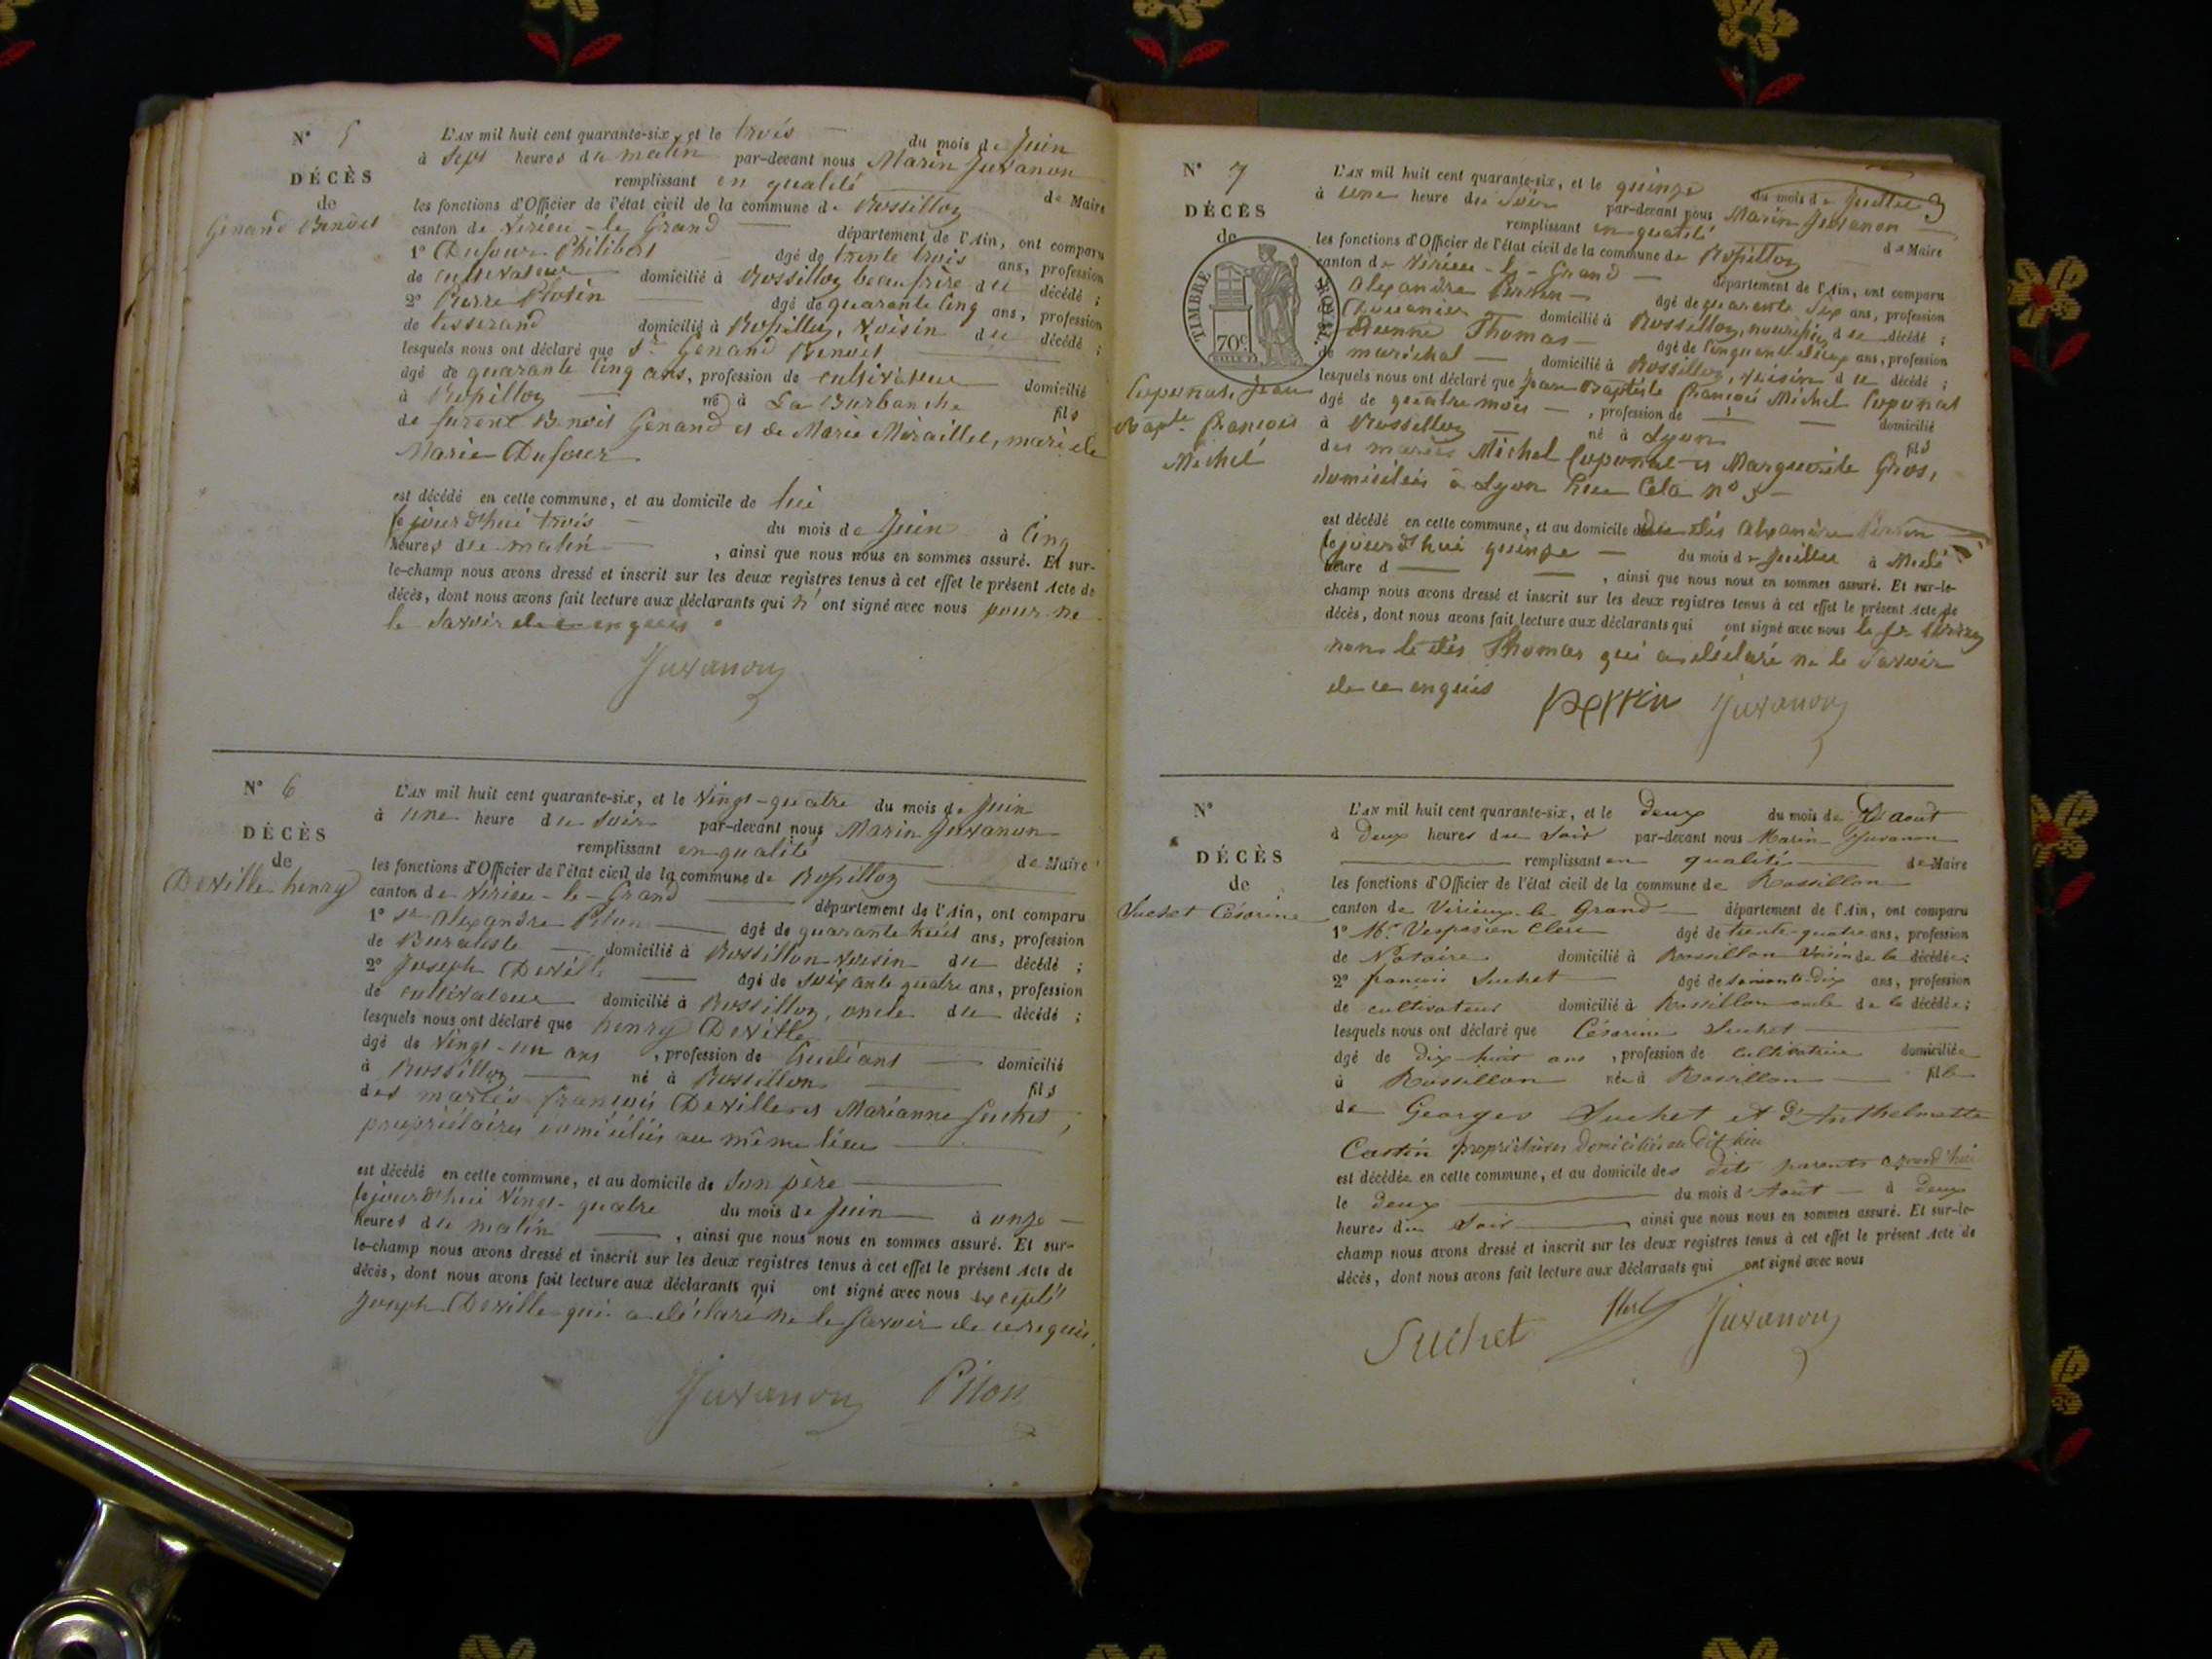 N° 5
DÉCÈS
de
Genand Benoit
L'AN mil huit cent quarante-six, et le trois du mois de Juin
à sept heures du matin par-devant nous Marin Juvanon
remplissant en qualité de Maire
les fonctions d'Officier de l'état civil de la commune de Rossillon
canton de Virieu-le-Grand département de l'Ain, ont comparu
1° Dufour Philibert âgé de trente trois ans, profession
de cultivateur domicilié à Rossillon beau frère du décédé ;
2° Pierre âgé de quarante cinq ans, profession
de tisserand domicilié à Rossillon, voisin du décédé ;
lesquels nous ont déclaré que Sr Genand Benoit
âgé de quarante cinq ans, profession de cultivateur domicilié
à Rossillon né à La Burbanche fils
de furent Benoit Genand et de Marie Miraillet, mari de
Marie Dufour
est décédé en cette commune, et au domicile de lui
cejourd'hui trois du mois de Juin à cinq
heures du matin , ainsi que nous nous en sommes assuré. Et sur-
le-champ nous avons dressé et inscrit sur les deux registres tenus à cet effet le présent Acte de
décès, dont nous avons fait lecture aux déclarants qui n'ont signé avec nous pour ne
le savoir de ce enquis
Juvanon
N° 6
DÉCÈS
de
Deville henry
L'AN mil huit cent quarante-six, et le vingt-quatre du mois de Juin
à une heure du soir par-devant nous Marin Juvanon
remplissant en qualité de Maire
les fonctions d'Officier de l'état civil de la commune de Rossillon
canton de Virieu-le-Grand département de l'Ain, ont comparu
1° Sr Alexandre Piton âgé de quarante huit ans, profession
de Buraliste domicilié à Rossillon voisin du décédé ;
2° Joseph Deville âgé de soixante quatre ans, profession
de cultivateur domicilié à Rossillon, oncle du décédé ;
lesquels nous ont déclaré que henry Deville
âgé de vingt-un ans , profession de domicilié
à Rossillon né à Rossillon fils
des mariés françois Deville et Marianne Suchet,
propriétaires domiciliés au même lieu
est décédé en cette commune, et au domicile de son père
cejourd'hui vingt-quatre du mois de Juin à onze
heures du matin , ainsi que nous nous en sommes assuré. Et sur-
le-champ nous avons dressé et inscrit sur les deux registres tenus à cet effet le présent Acte de
décès, dont nous avons fait lecture aux déclarants qui ont signé avec nous excepté
Joseph Deville qui a déclaré ne le savoir de ce requis.
Juvanon Piton
N° 7
DÉCÈS
de
TIMBRE ROYAL
70c
Coponat, Jean
Bapte François
Michel
L'AN mil huit cent quarante-six, et le quinze du mois de Juillet
à une heure du soir par-devant nous Marin Juvanon
remplissant en qualité de Maire
les fonctions d'Officier de l'état civil de la commune de Rossillon
canton de Virieu-le-Grand département de l'Ain, ont comparu
Alexandre Perrin âgé de quarante six ans, profession
Douanier domicilié à Rossillon, nourricier du décédé ;
Etienne Thomas âgé de cinquante deux ans, profession
de maréchal domicilié à Rossillon, voisin du décédé ;
lesquels nous ont déclaré que Jean Baptiste François Michel Coponat
âgé de quatre mois , profession de domicilié
à Rossillon né à Lyon fils
des mariés Michel Coponat et Marguerite Gros,
domiciliés à Lyon
est décédé en cette commune, et au domicile du dit Alexandre Perrin
cejourd'hui quinze du mois de Juillet à Midi
heure d , ainsi que nous nous en sommes assuré. Et sur-le-
champ nous avons dressé et inscrit sur les deux registres tenus à cet effet le présent Acte de
décès, dont nous avons fait lecture aux déclarants qui ont signé avec nous le Sr Perrin
non le dit Thomas qui a déclaré ne le savoir
de ce enquis Perrin Juvanon
N°
DÉCÈS
de
Suchet Césarine
L'AN mil huit cent quarante-six, et le deux du mois d'Aout
à deux heures du soir par-devant nous Marin Juvanon
remplissant en qualité de Maire
les fonctions d'Officier de l'état civil de la commune de Rossillon
canton de Virieux le Grand département de l'Ain, ont comparu
1° Me Vespasien Clerc âgé de trente-quatre ans, profession
de Notaire domicilié à Rossillon voisin de la décédée ;
2° françois Suchet âgé de soixante-dix ans, profession
de cultivateur domicilié à Rossillon oncle de la décédée ;
lesquels nous ont déclaré que Césarine Suchet
âgé de dix-huit ans , profession de cultivatrice domiciliée
à Rossillon née à Rossillon fille
de Georges Suchet et d'Anthelmette
Castin propriétaires domiciliés au dit lieu
est décédée en cette commune, et au domicile des dits parents aujourd'hui
le deux du mois d'Août à deux
heures du soir , ainsi que nous nous en sommes assuré. Et sur-le-
champ nous avons dressé et inscrit sur les deux registres tenus à cet effet le présent Acte de
décès, dont nous avons fait lecture aux déclarants qui ont signé avec nous
Suchet Clerc Juvanon